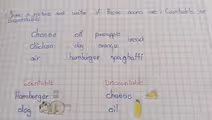 Draw a picture and write if these nouns are : Countable or Uncountable
Cheese oil pineapple bread
chicken dog orange
air hamburger spaghetti
Countable Uncountable
Hamburger cheese
dog oil